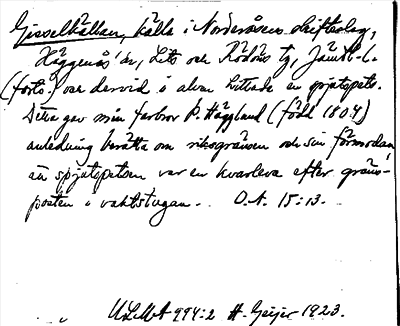 Gisselkällan, källa i Norderåsens skifteslag,
Häggenås' sn, Lits och Rödöns tg, Jämtl. l.
(forts.) var dervid i älven hittade en spjutspets.
Detta gav min farbror P. Hägglund (född 1804)
anledning berätta om riksgränsen och sin förmodan
att spjutspetsen var en kvarleva efter gräns-
posten i vaktstugan. - O.N. 15:13. -
ULMA 994:2 H. Geijer 1923.